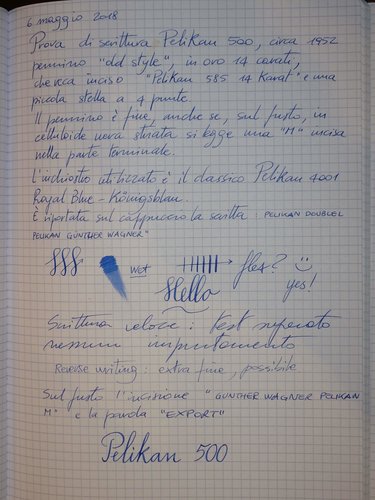 6 maggio 2018
Prova di scrittura Pelikan 500, circa 1952
pennino "old style", in oro 14 carati,
che reca inciso "Pelikan 585 14 Karat" e una
piccola stella a 4 punte.
Il pennino è fine, anche se, sul fusto, in
celluloide nera striata si legge una "M" incisa
nella parte terminale.
L'inchiostro utilizzato è il classico Pelikan 4001
Royal Blue - Königsblau.
È riportata sul cappuccio la scritta : PELIKAN
PELIKAN GÜNTHER WAGNER"
wet flex? yes!
Hello
Scrittura veloce : test superato
nessun impuntamento
Reverse writing : extra fine, possibile
Sul fusto l'incisione "GÜNTHER WAGNER PELIKAN
M" e la parola "EXPORT"
Pelikan 500